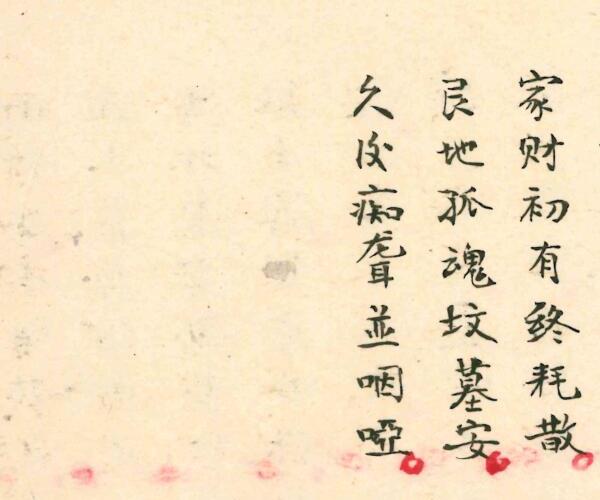 家财初有终耗散
艮地孤魂坟墓安
久后痴聋並咽啞